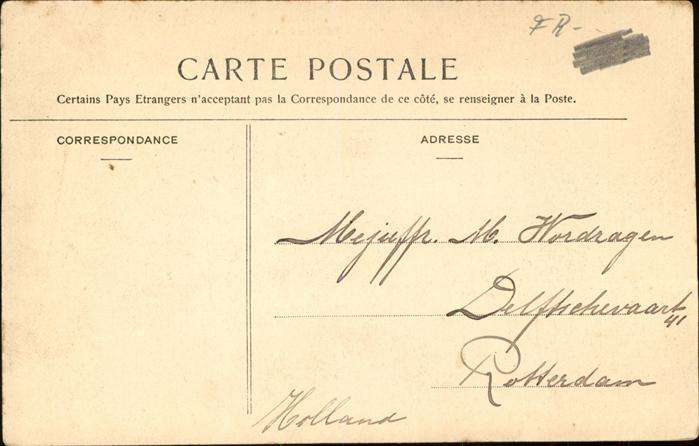 FR-
CARTE POSTALE
Certains Pays Etrangers n'acceptant pas la Correspondance de ce côté, se renseigner à la Poste.
CORRESPONDANCE
ADRESSE
Mejuffr. M. Wordragen
Delftschevaart
41
Rotterdam
Holland